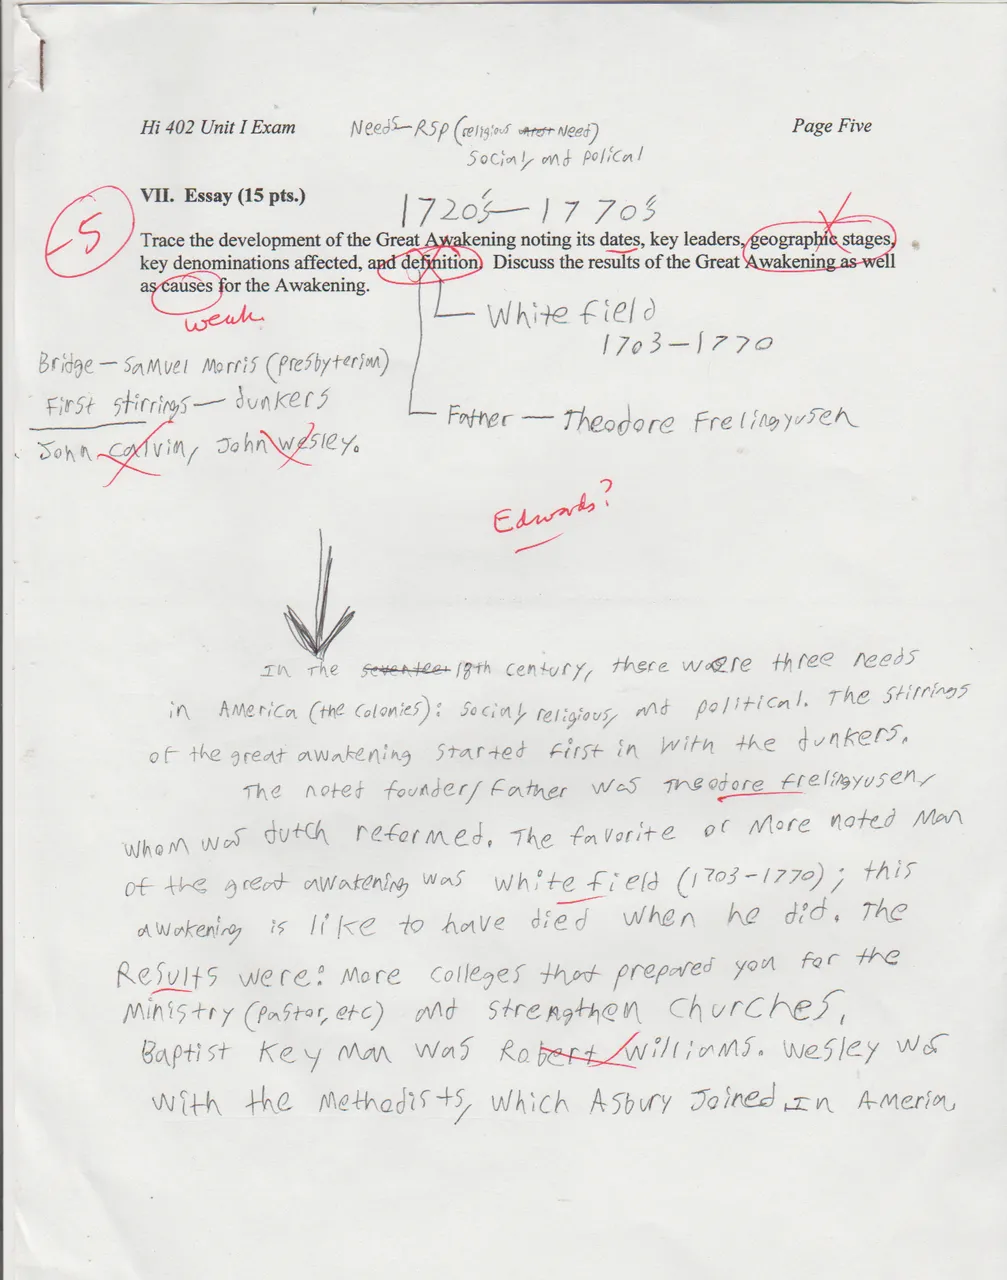 Hi 402 Unit I Exam
Needs-RSP (religious Need)
Page Five
Social, and polical
VII. Essay (15 pts.)
1720's-1770's
-5
Trace the development of the Great Awakening noting its dates, key leaders, geographic stages,
key denominations affected, and definition. Discuss the results of the Great Awakening as well
as causes for the Awakening.
weak
White field
1703-1770
Bridge-Samuel Morris (Presbyterian)
First stirrings-dunkers
Father-Theodore Frelingyusen
John Calvin, John Wesley.
Edwards?
In the seventeen 18th century, there were three needs
in America (the colonies): social, religious, and political. The stirrings
of the great awakening started first in with the dunkers.
The noted founder/Father was Theodore Frelingyusen,
whom was dutch reformed. The favorite or more noted man
of the great awakening was white field (1703-1770); this
awakening is like to have died when he did. The
Results were: more colleges that prepared you for the
Ministry (pastor, etc) and strengthen Churches,
Baptist key man was Robert Williams. Wesley was
with the Methodists, which Asbury Joined In Ameria,